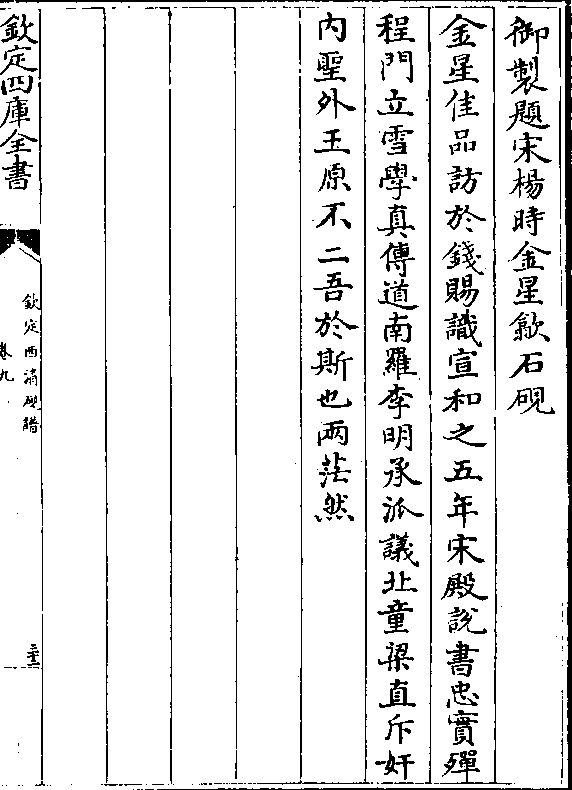 御製題宋楊時金星歙石硯
金星佳品訪於錢賜識宣和之五年宋殿說書忠實殫
程門立雪學真傳道南羅李明承派議北童梁直斥奸
内聖外王原不二吾於斯也兩茫然
欽定四庫全書
欽定西清硯譜
卷九